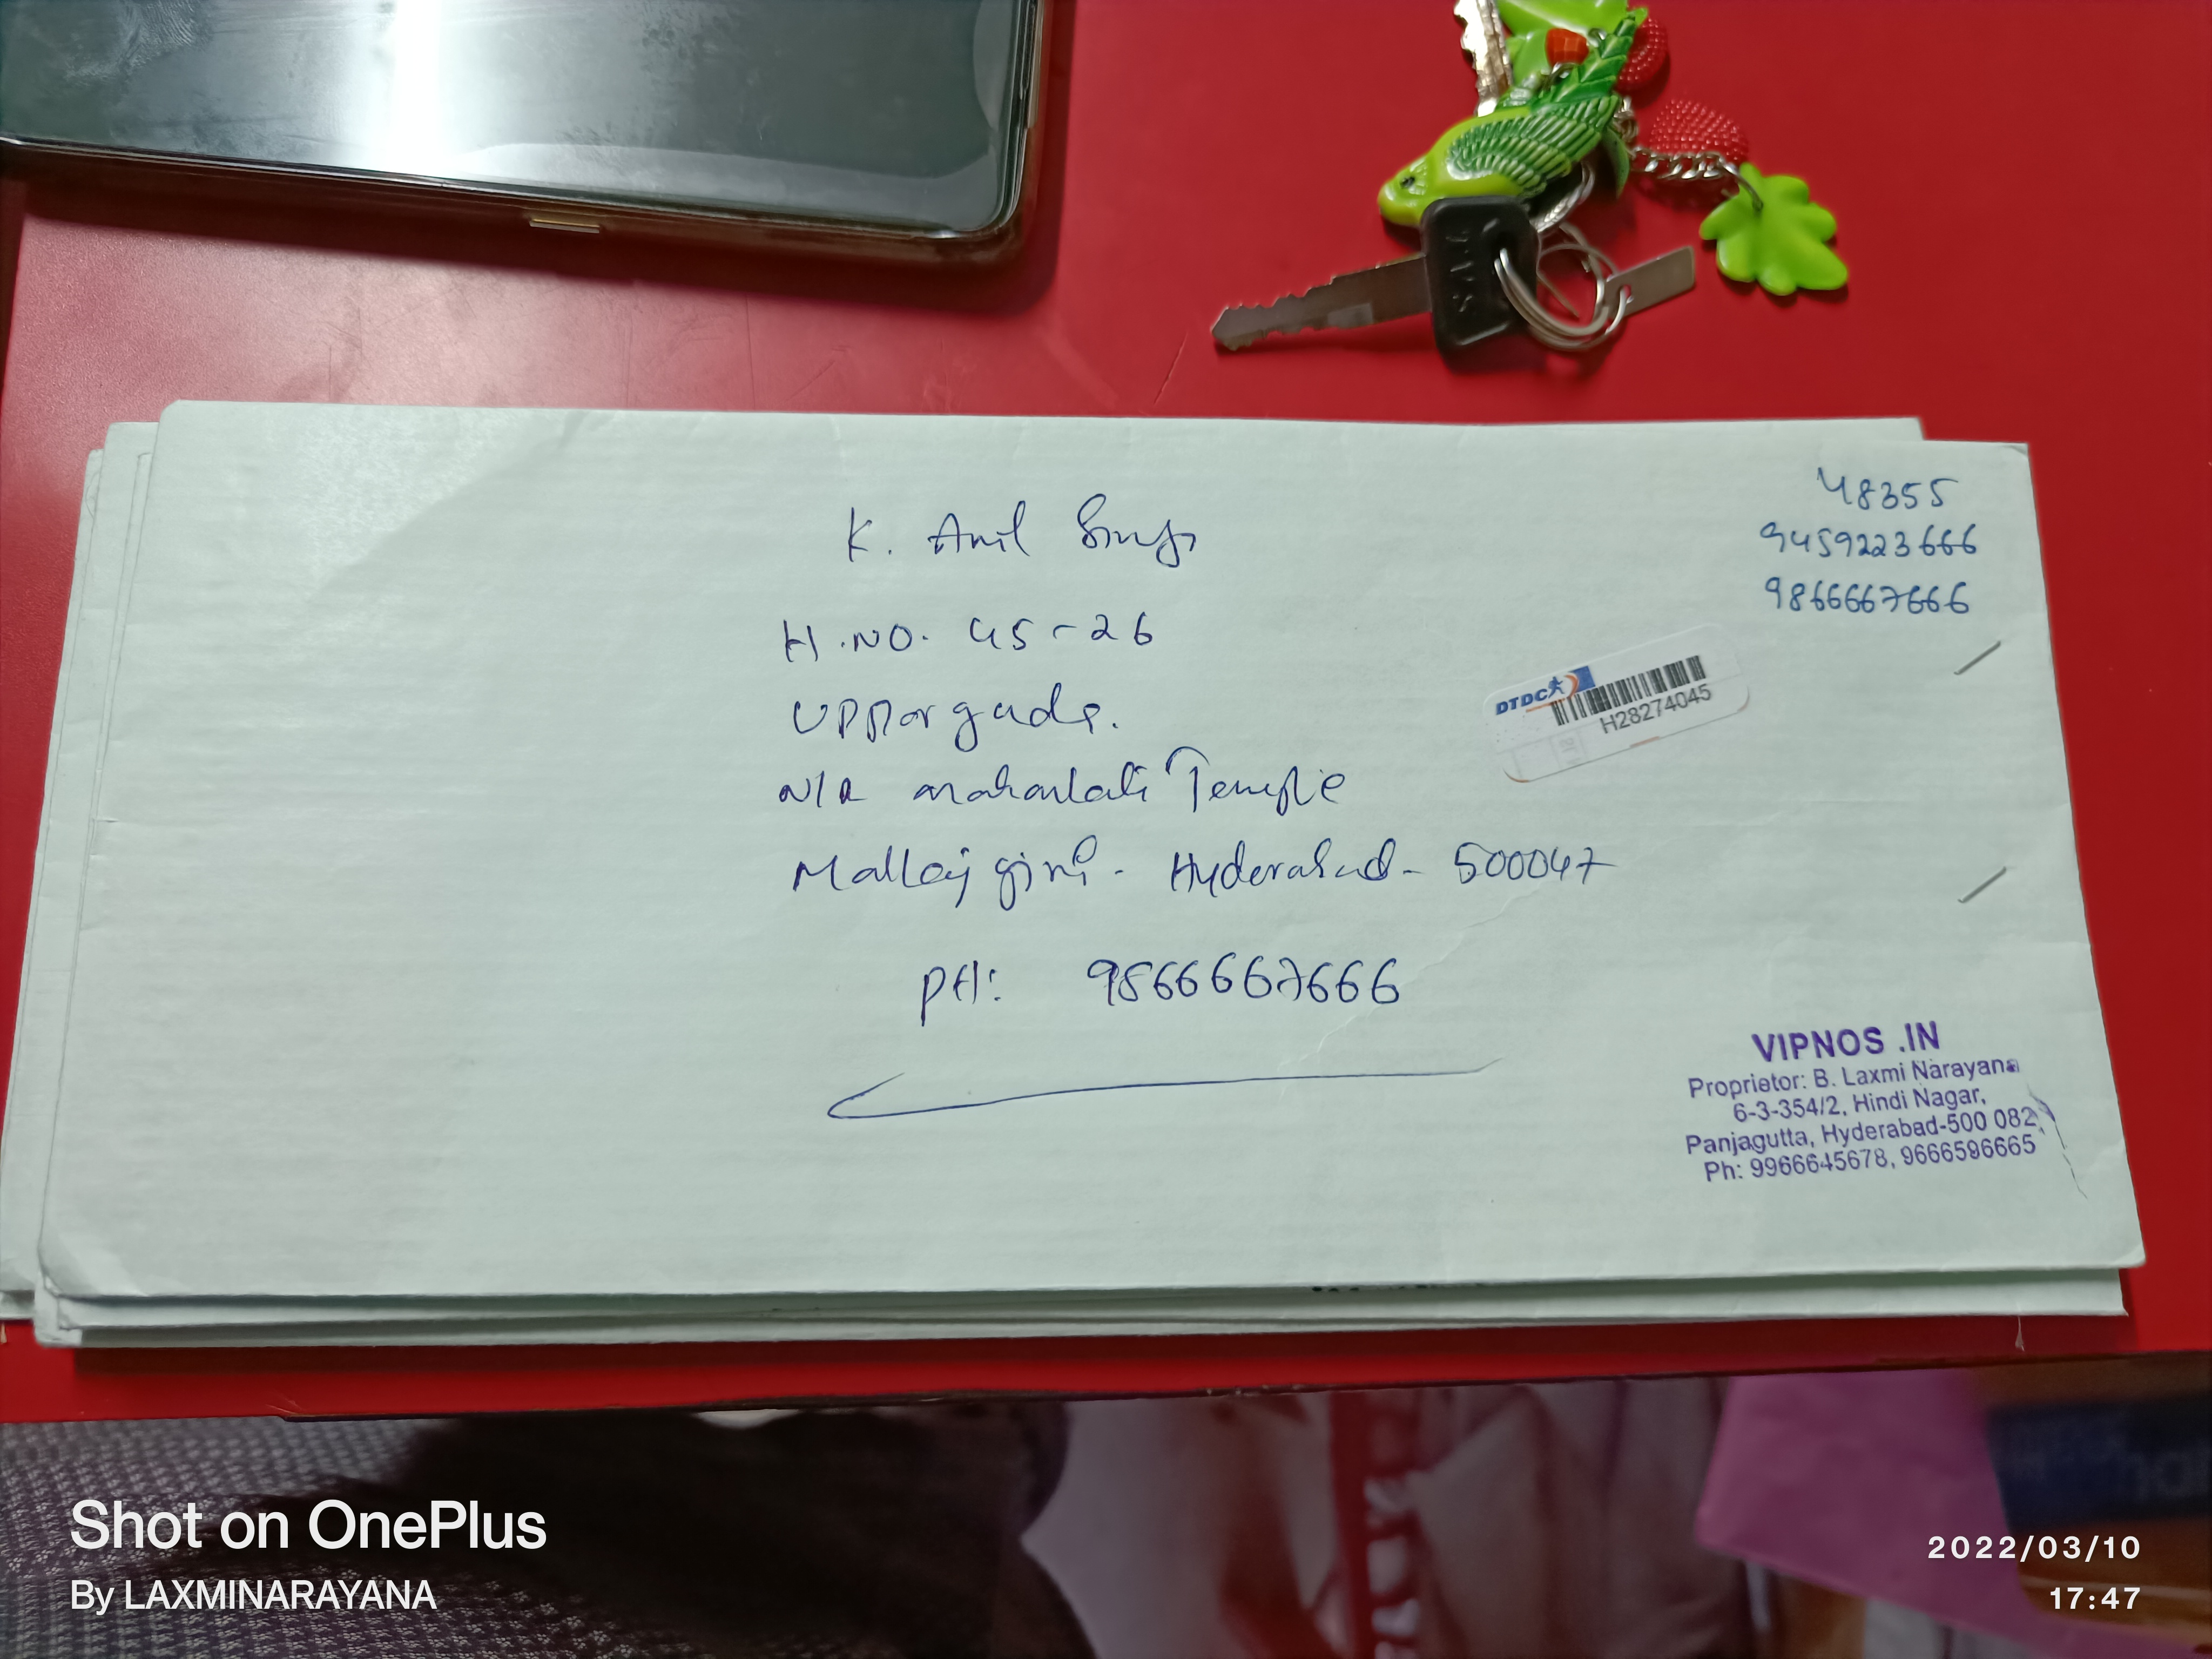 K. Anil Singh
H.NO. 45-26
Upparguda.
N/R Mahankali Temple
Malkajgiri - Hyderabad - 500047
PH: 9866667666
48355
9459223666
9866667666
DTDC
H28274045
VIPNOS .IN
Proprietor: B. Laxmi Narayana
6-3-354/2, Hindi Nagar,
Panjagutta, Hyderabad-500 082
Ph: 9966645678, 9666596665
TVS
Shot on OnePlus
By LAXMINARAYANA
2022/03/10
17:47